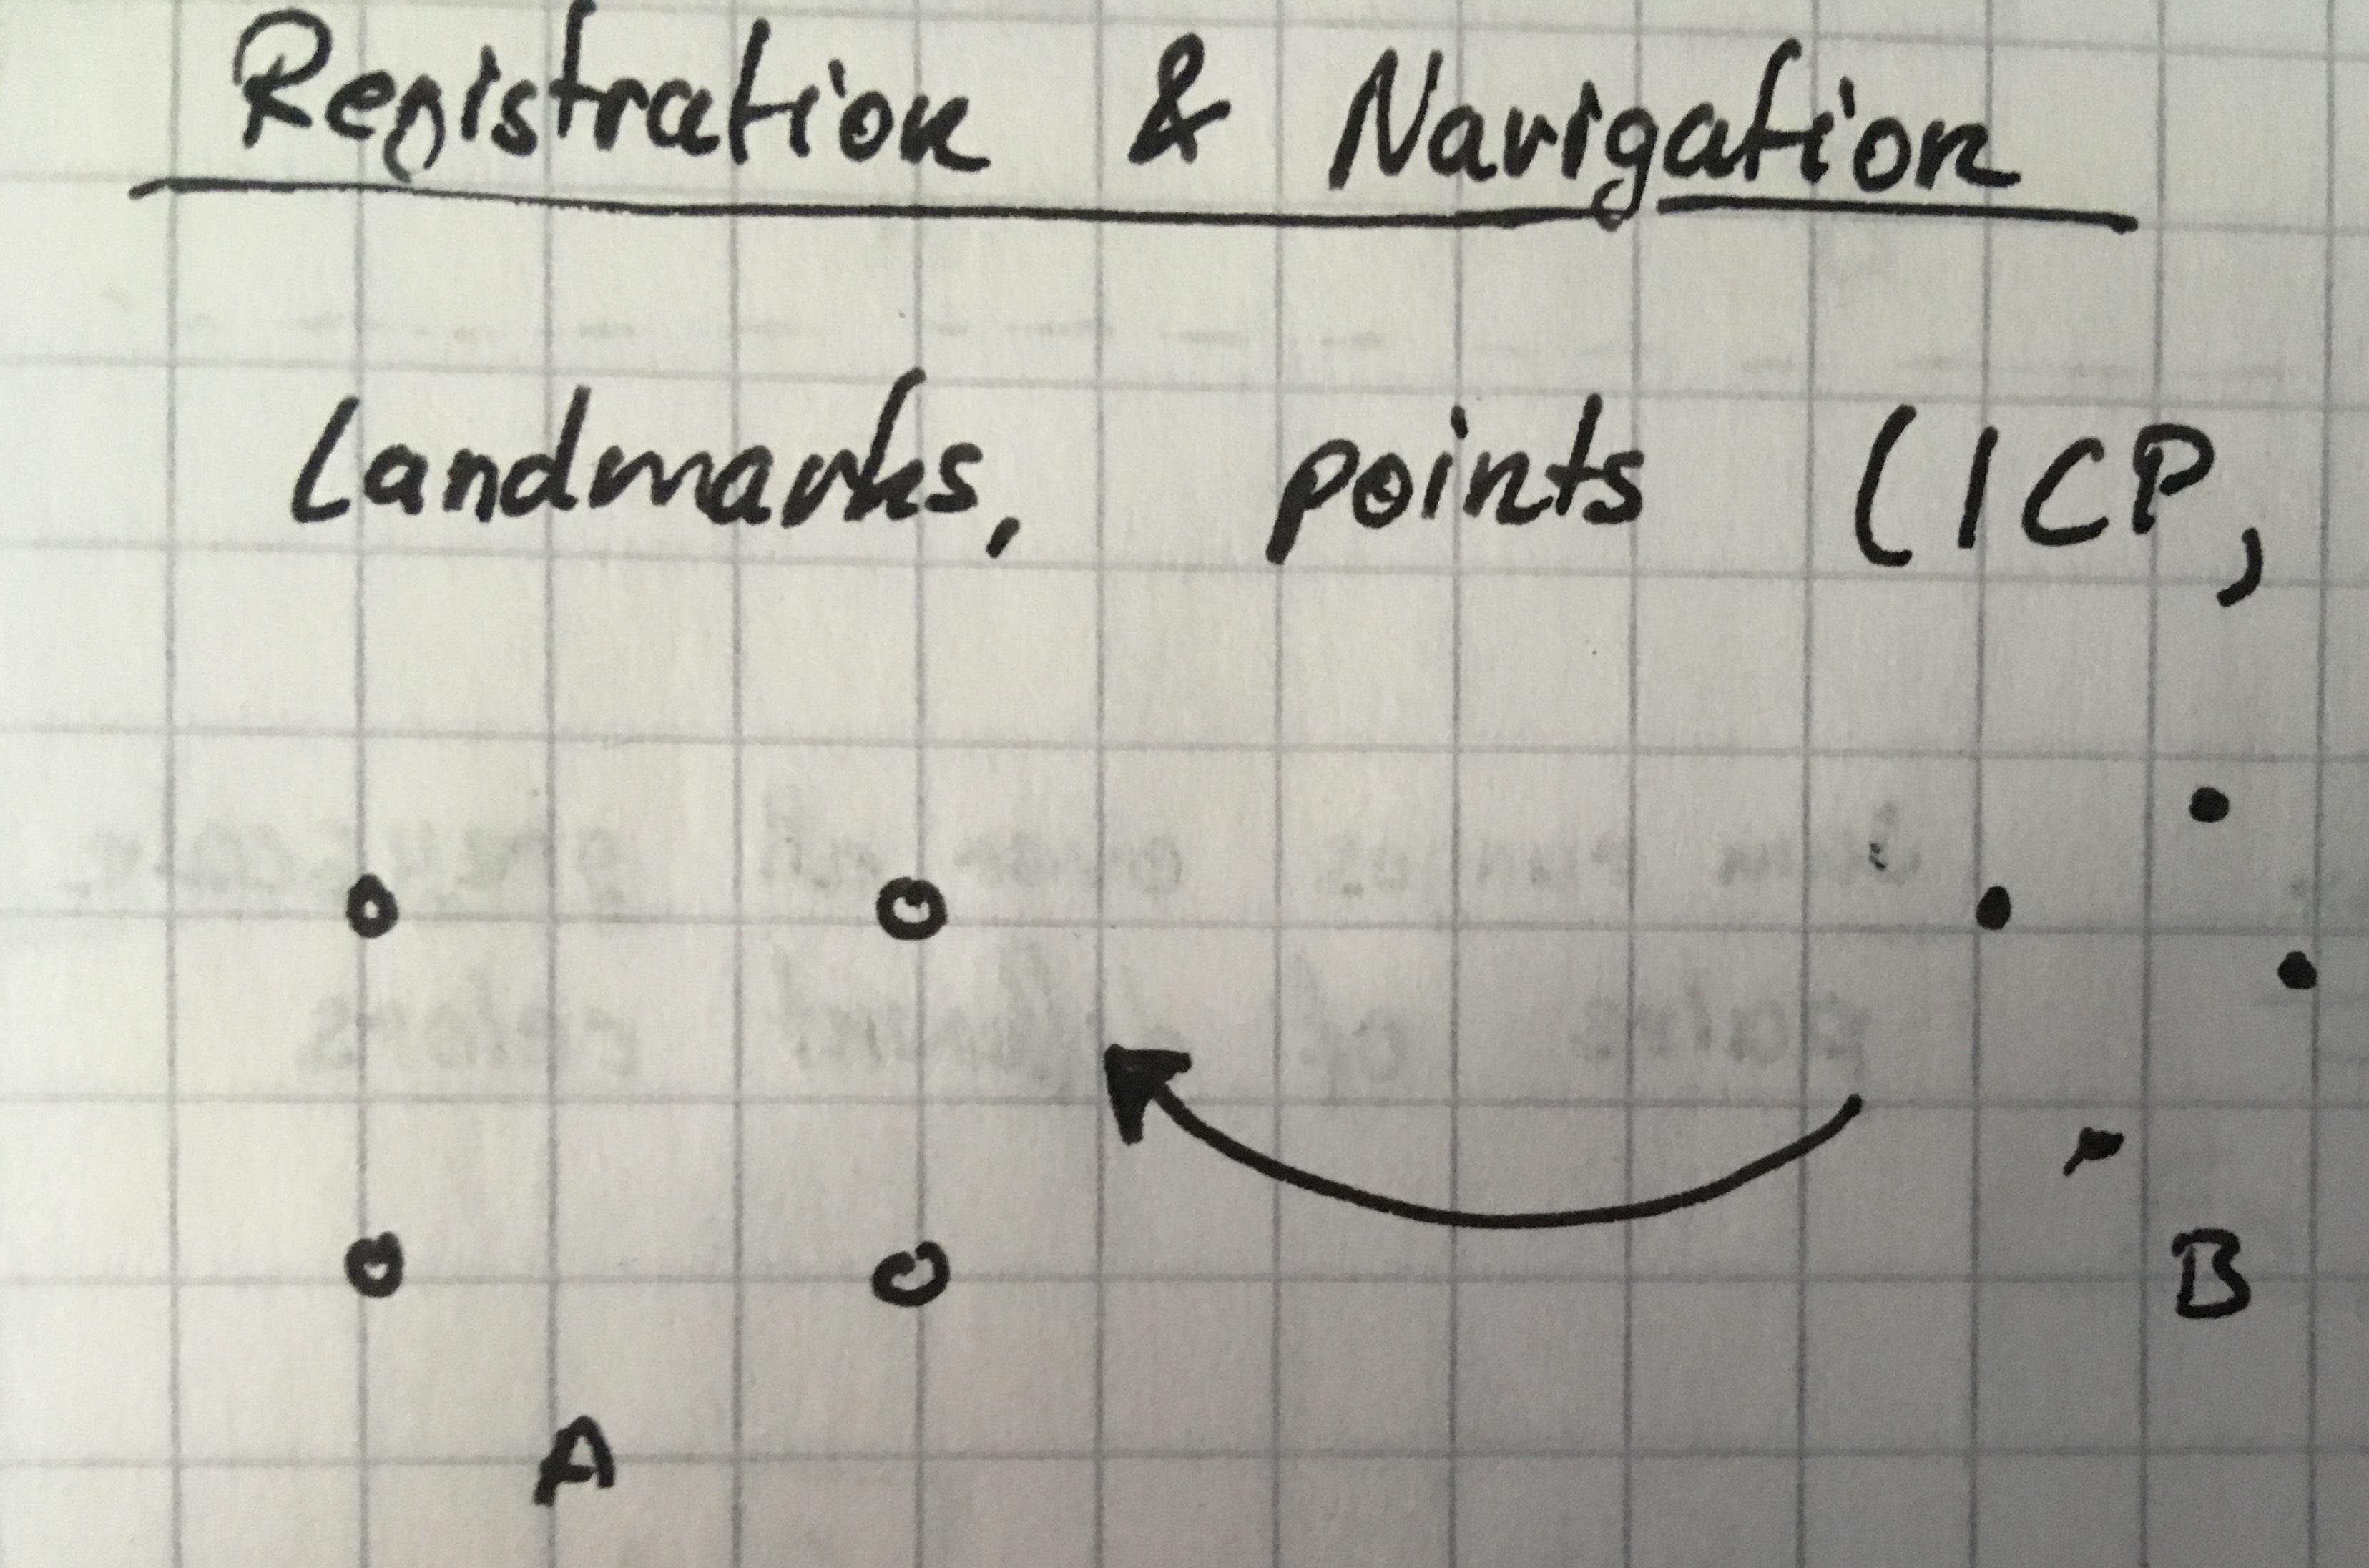 Registration & Navigation
Landmarks, points (ICP,
A B